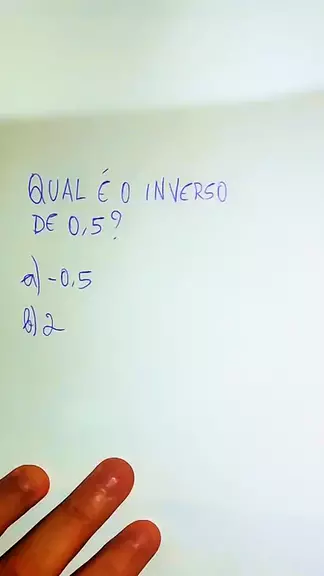 QUAL É O INVERSO
DE 0,5?
a) -0,5
b) 2